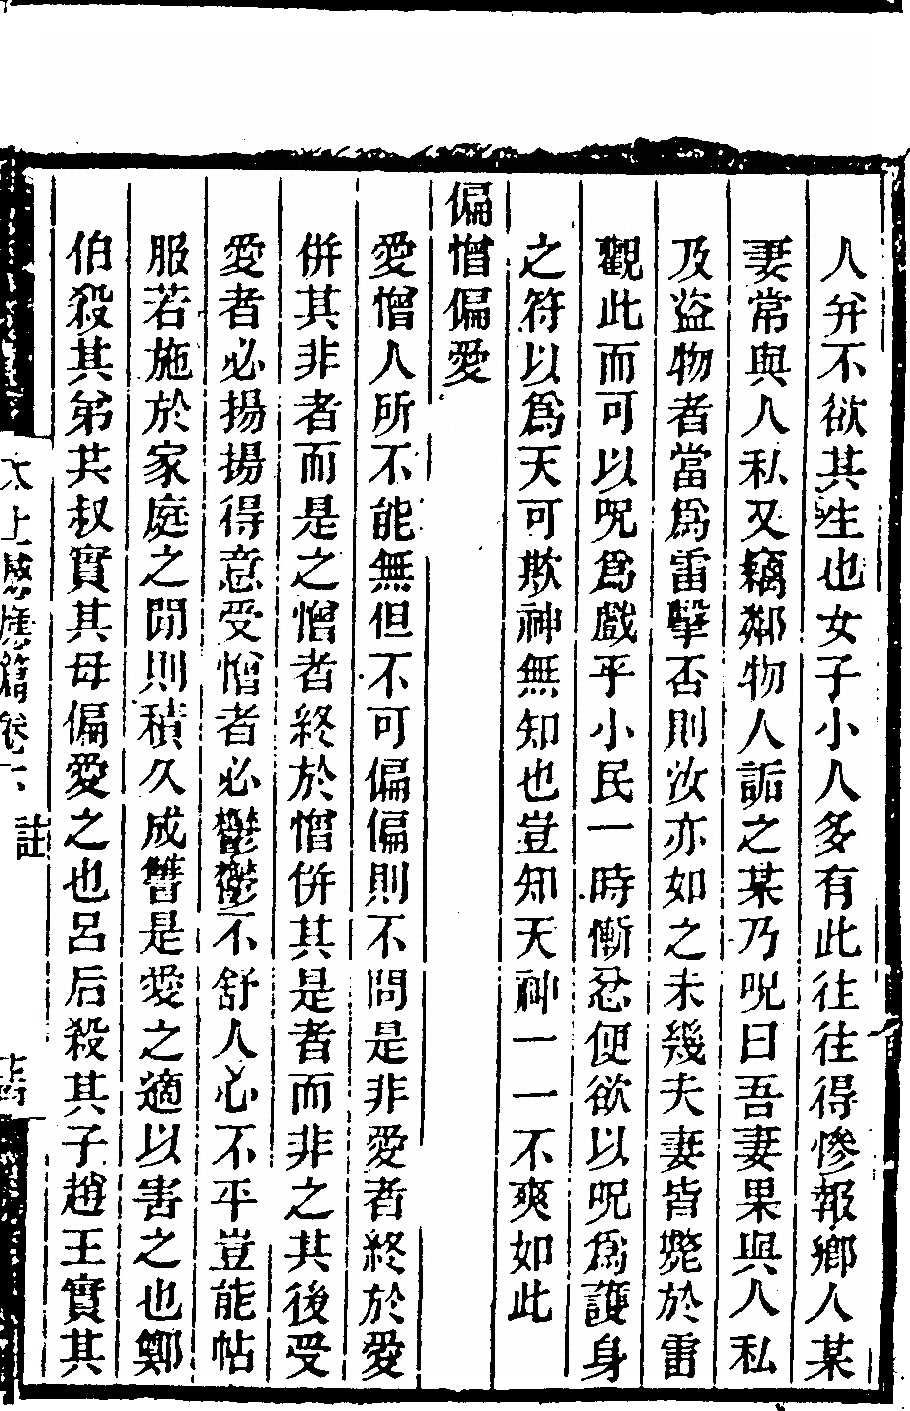 人弁不欲其生也女子小人多有此往往得慘報鄉人某
妻常與人私又竊鄰物人詬之某乃呪曰吾妻果與人私
及盜物者當爲雷擊否則汝亦如之未幾夫妻皆斃於雷
觀此而可以呪爲戲乎小民一時慚忿便欲以呪爲護身
之符以爲天可欺神無知也豈知天神一一不爽如此
偏憎偏愛
愛憎人所不能無但不可偏偏則不問是非愛者終於愛
併其非者而是之憎者終於憎併其是者而非之其後受
愛者必揚揚得意受憎者必鬱鬱不舒人心不平豈能帖
服若施於家庭之間則積久成讐是愛之適以害之也鄭
伯殺其弟共叔實其母偏愛之也呂后殺其子趙王實其
太上感應篇卷六 註